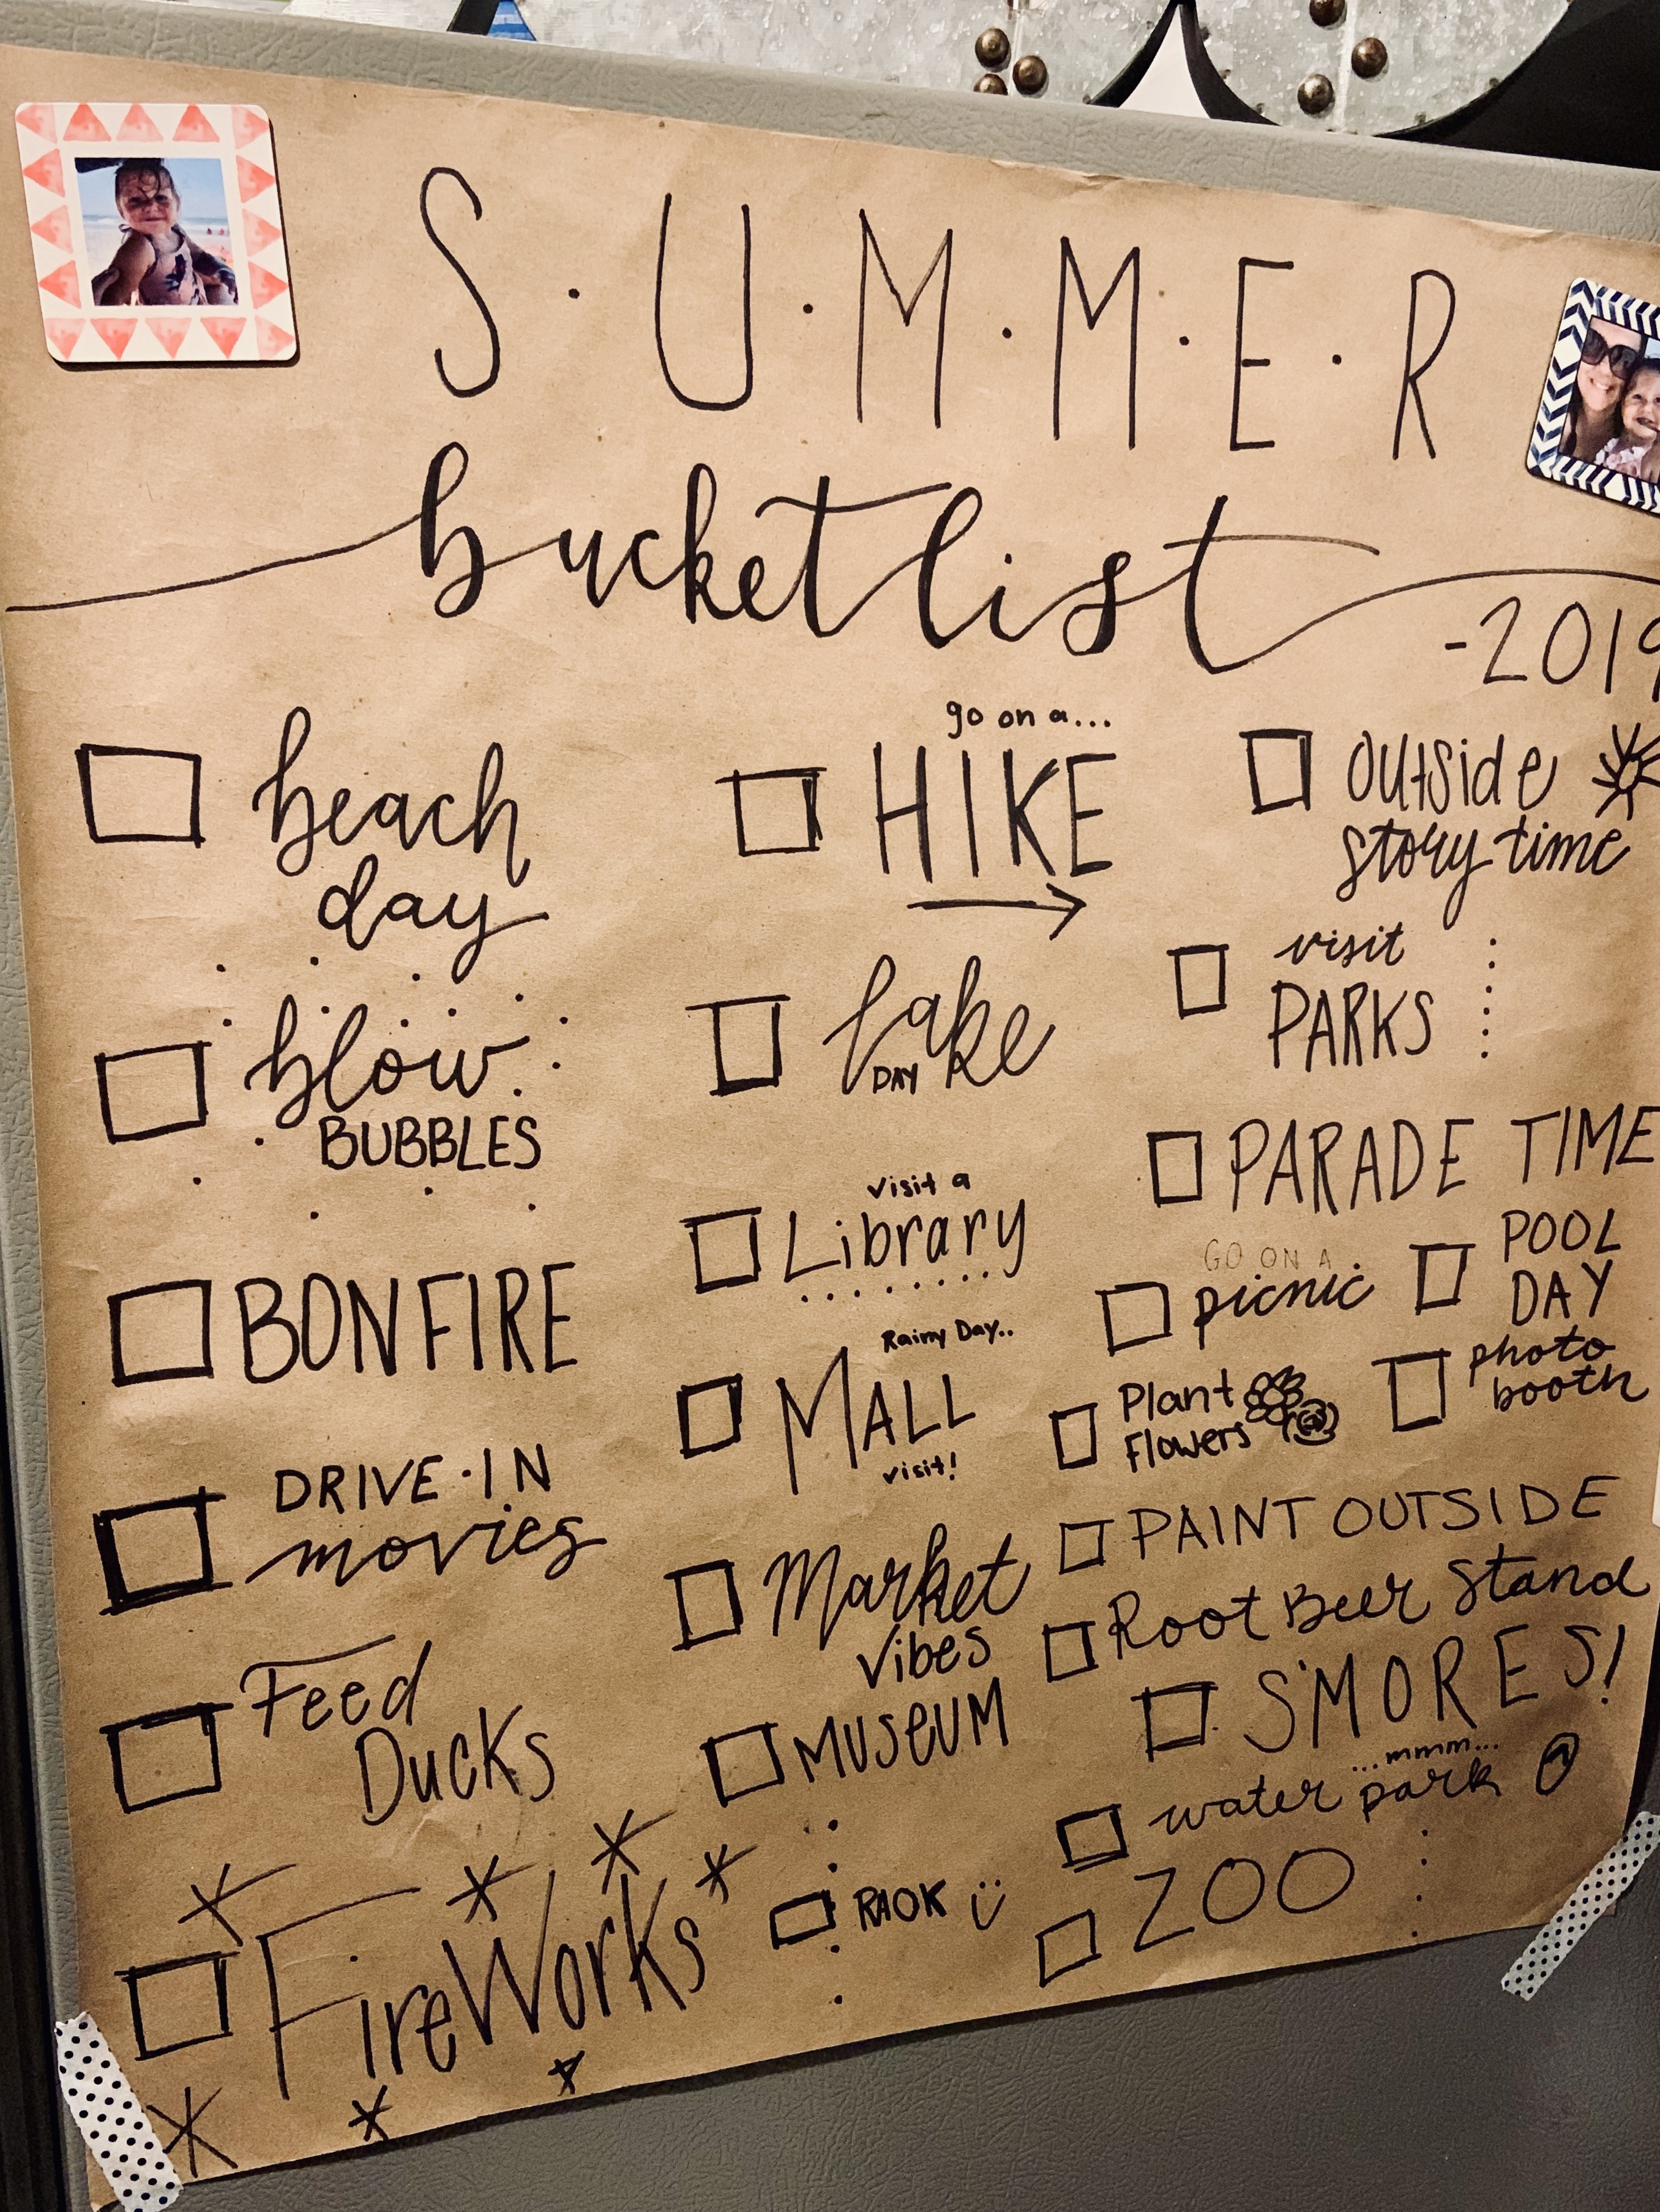 S·U·M·M·E·R
bucket list
-2019
beach
day
blow
BUBBLES
BONFIRE
DRIVE-IN
movies
Feed
Ducks
FireWorks
go on a...
HIKE
Lake
DAY
visit a
Library
Rainy Day..
MALL
visit!
Market
Vibes
MUSEUM
RAOK
outside
story time
visit
PARKS
PARADE TIME
GO ON A
picnic
POOL
DAY
Plant
Flowers
photo
booth
PAINT OUTSIDE
Root Beer Stand
S'MORES!
...mmm...
water park
ZOO